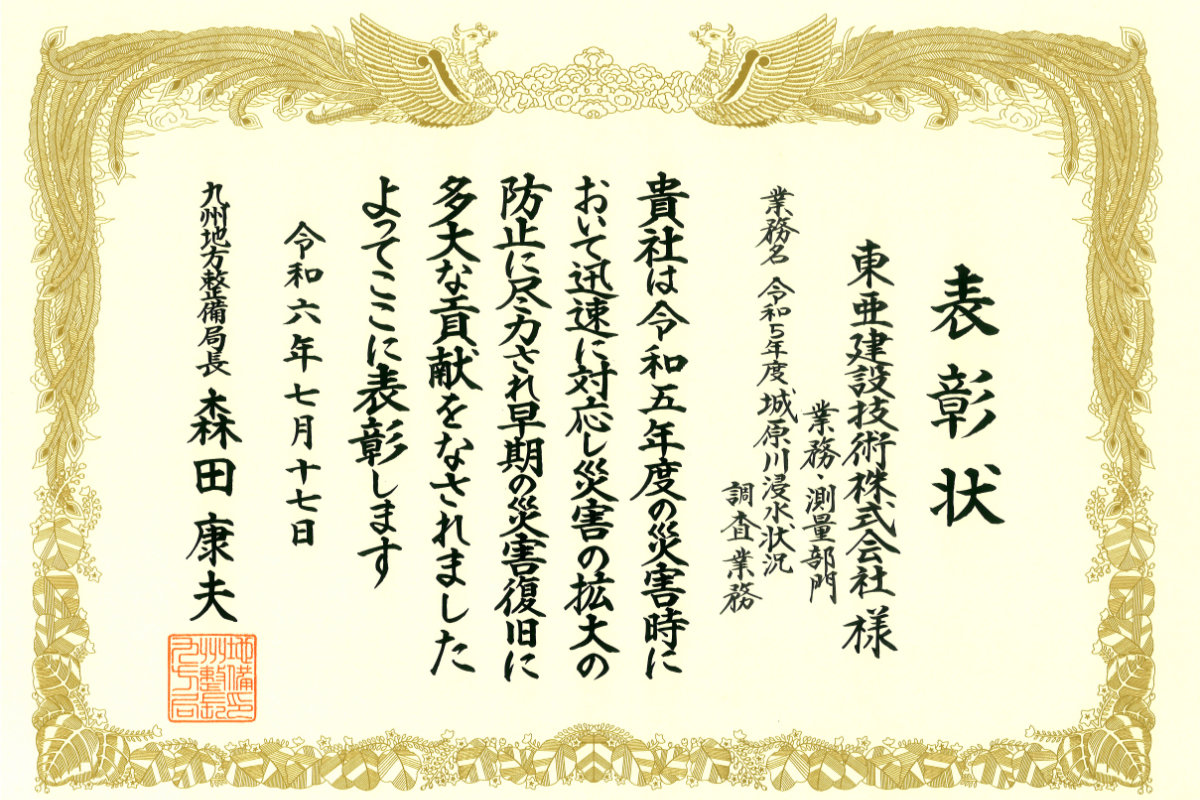 表彰状
東亜建設技術株式会社 様
業務・測量部門
業務名 令和5年度 城原川浸水状況
調査業務
貴社は令和五年度の災害時に
おいて迅速に対応し災害の拡大の
防止に尽力され早期の災害復旧に
多大な貢献をなされました
よってここに表彰します
令和六年七月十七日
九州地方整備局長 森田康夫